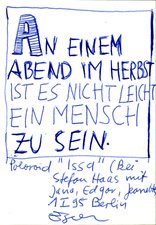 AN EINEM
ABEND IM HERBST
IST ES NICHT LEICHT
EIN MENSCH
ZU SEIN.
Polaroid "Issa" (bei
Stefan Haas mit
Jana, Edgar, Jeanette
1 I 95 Berlin